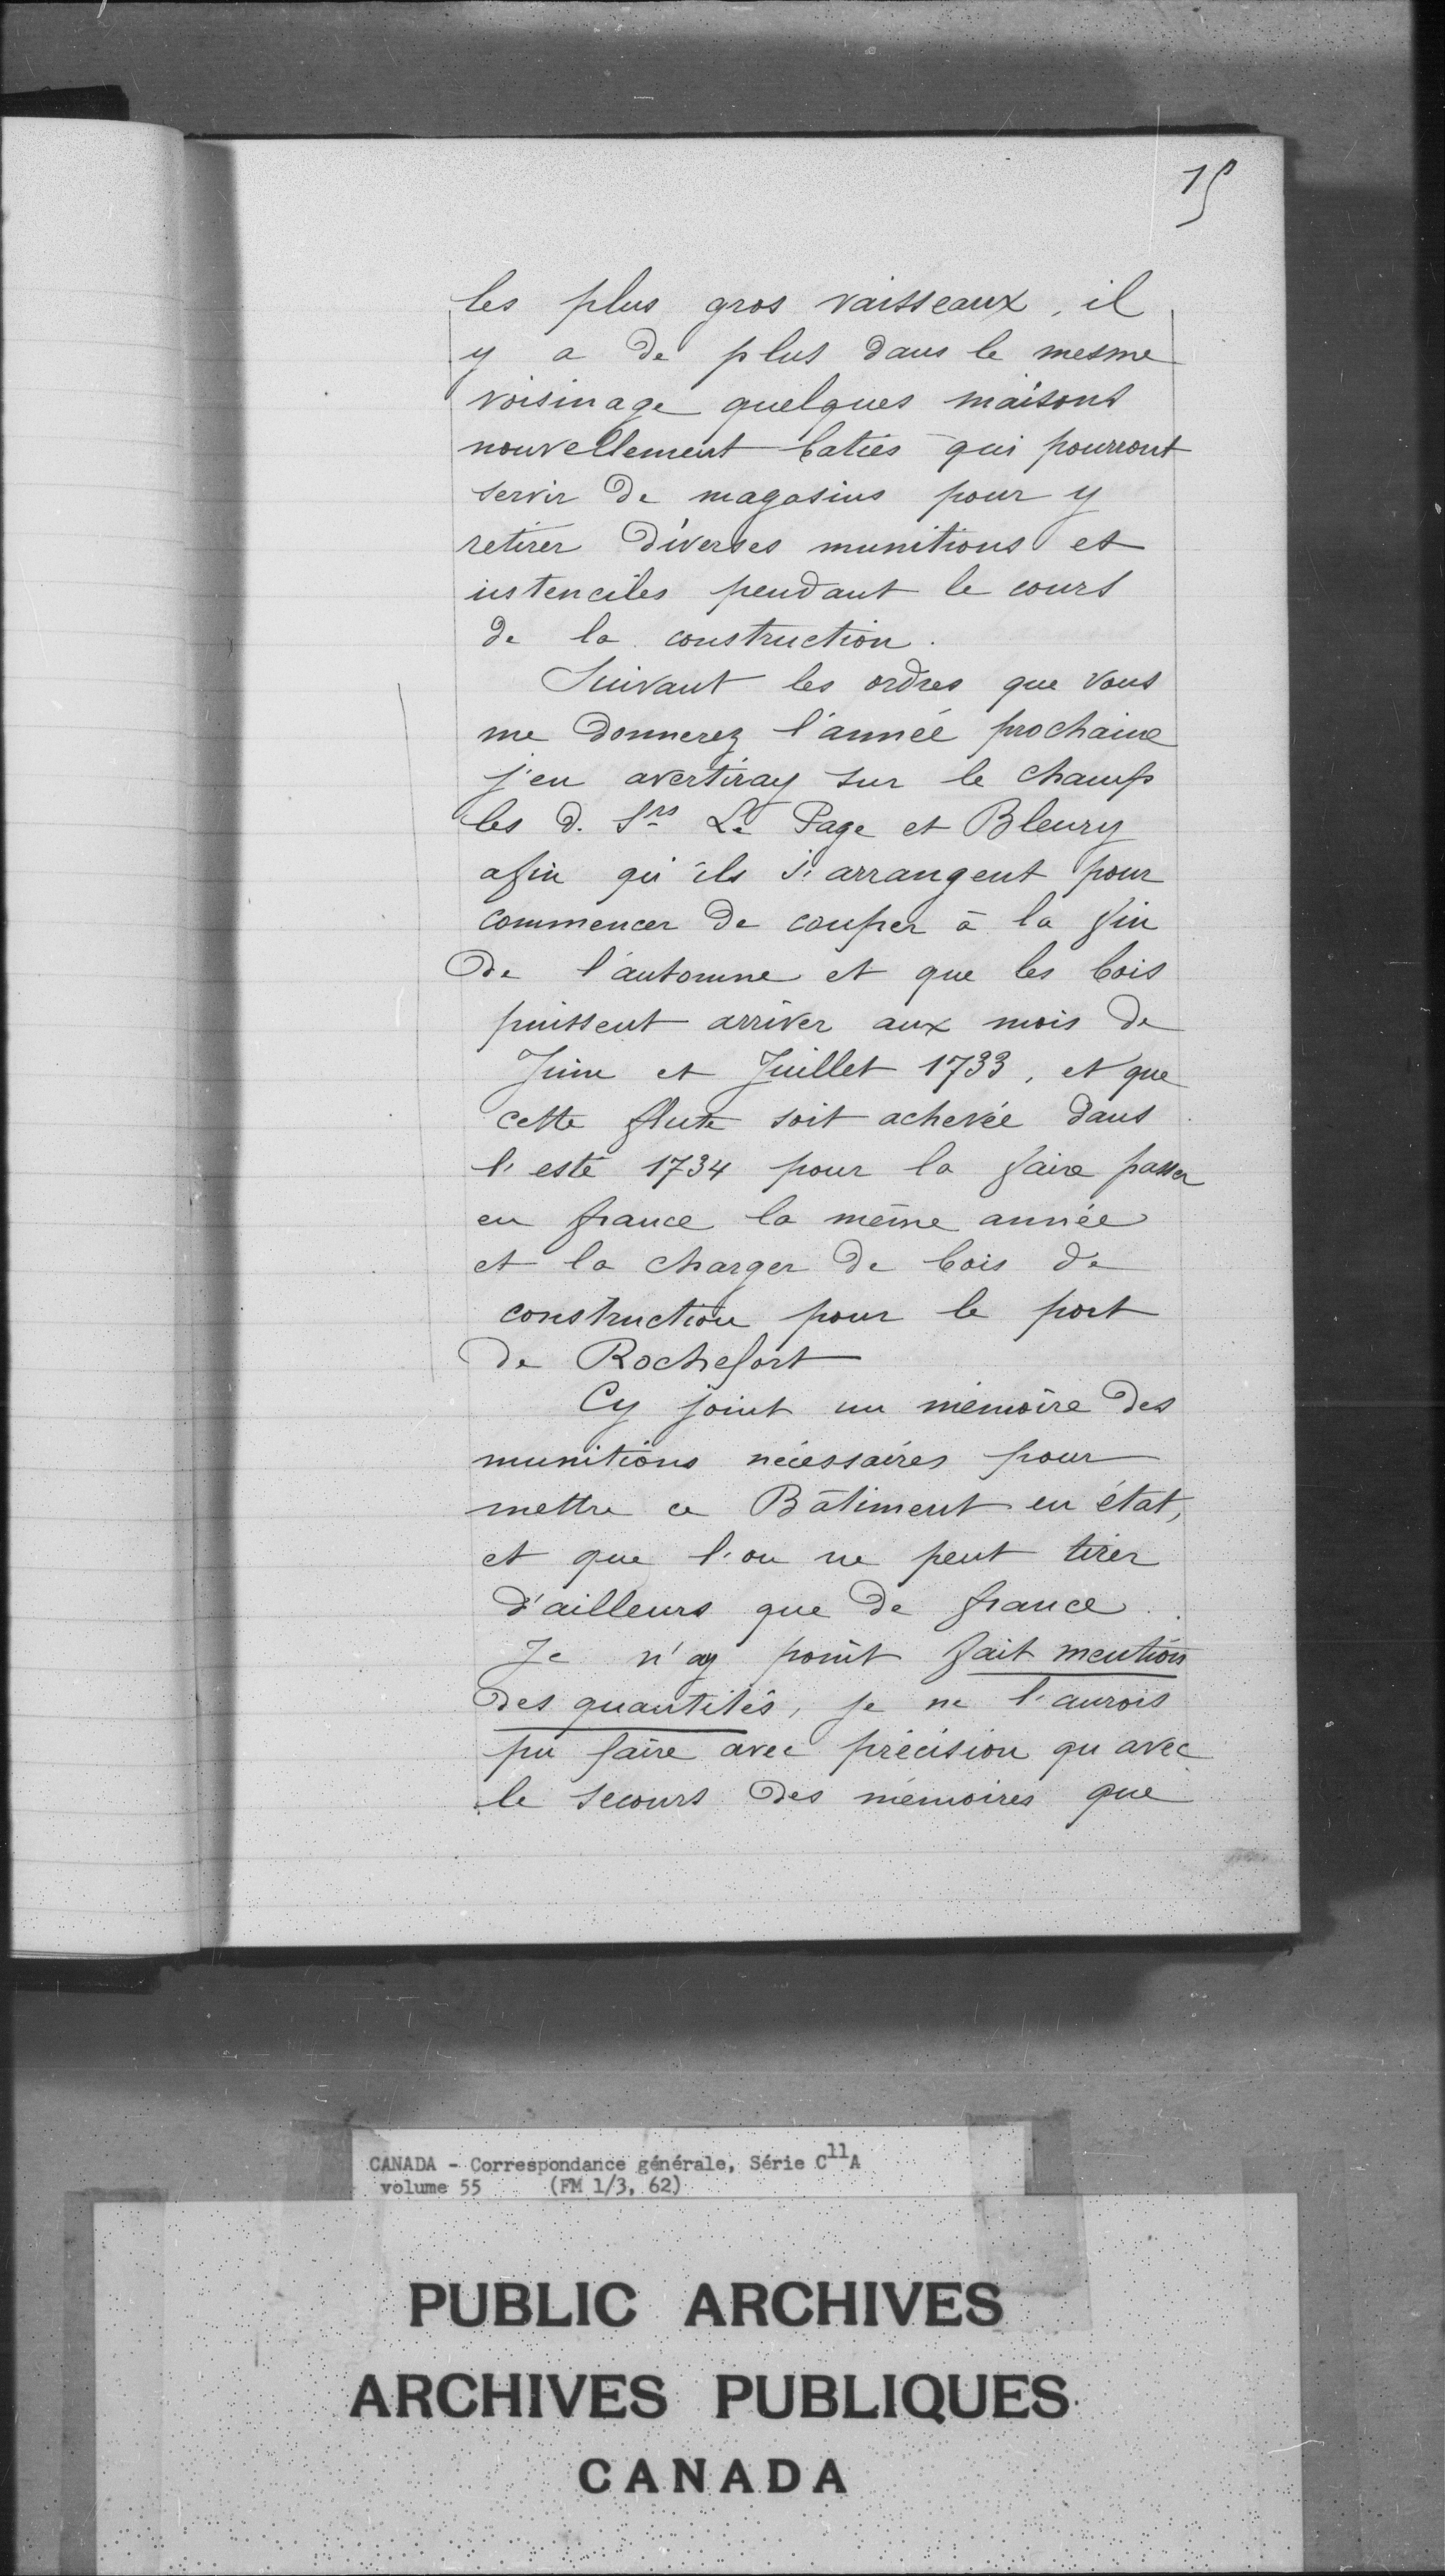 15
les plus gros vaisseaux, il
y a de plus dans le mesme
voisinage quelques maisons
nouvellement baties qui pourront
servir de magasins pour y
retirer diverses munitions et
ustenciles pendant le cours
de la construction.
Suivant les ordres que vous
me donnerez l'année prochaine
j'en avertiray sur le champ
les d. Srs Le Page et Bleury
afin qu'ils s'arrangent pour
commencer de couper à la fin
de l'automne et que les bois
puissent arriver aux mois de
Juin et Juillet 1733, et que
cette flute soit achevée dans
l'esté 1734 pour la faire passer
en france la même année
et la charger de bois de
construction pour le port
de Rochefort
Cy joint un mémoire des
munitions nécessaires pour
mettre ce Bâtiment en état,
et que l'on ne peut tirer
d'ailleurs que de france.
Je n'ay point fait mention
des quantités, je ne l'aurois
pu faire avec précision qu'avec
le secours des mémoires que
CANADA - Correspondance générale, Série C11A
volume 55 (FM 1/3, 62)
PUBLIC ARCHIVES
ARCHIVES PUBLIQUES
CANADA